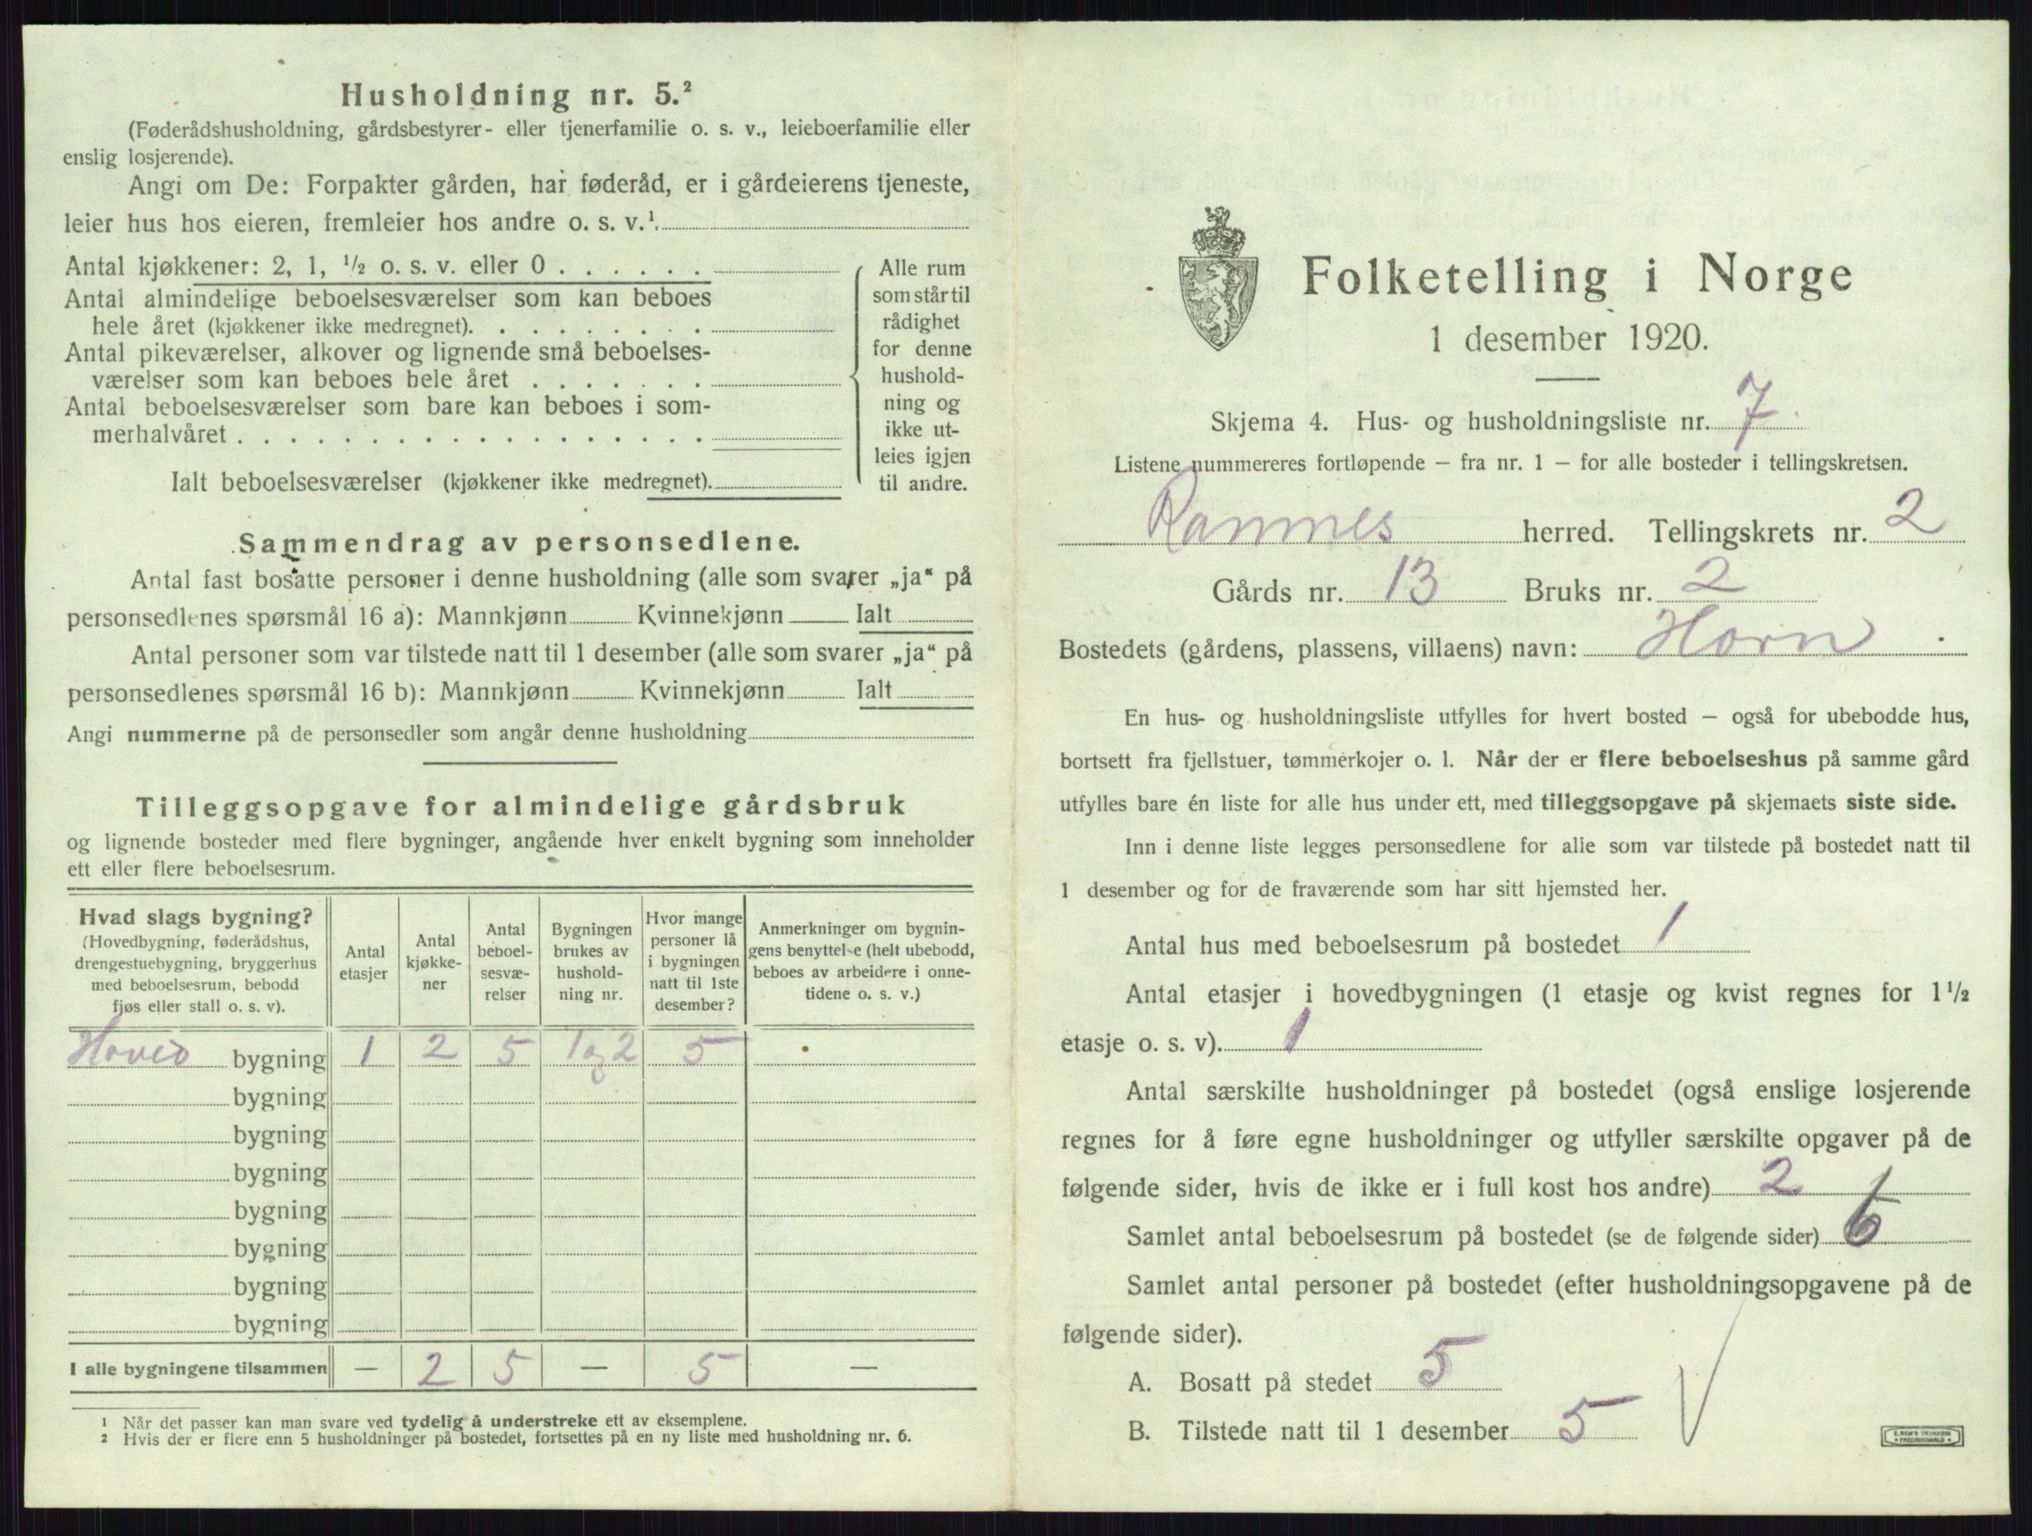 Husholdning nr. 5.²
(Føderådshusholdning, gårdsbestyrer- eller tjenerfamilie o. s. v., leieboerfamilie eller
enslig losjerende).
Angi om De: Forpakter gården, har føderåd, er i gårdeierens tjeneste,
leier hus hos eieren, fremleier hos andre o. s. v.¹.
Antal kjøkkener: 2, 1, ½ o. s. v. eller 0 . . . . . .
Antal almindelige beboelsesværelser som kan beboes
hele året (kjøkkener ikke medregnet). . . . . . . . .
Antal pikeværelser, alkover og lignende små beboelses-
værelser som kan beboes hele året . . . . . . .
Antal beboelsesværelser som bare kan beboes i som-
merhalvåret . . . . . . . . . . . . . . . . . .
Ialt beboelsesværelser (kjøkkener ikke medregnet).
Alle rum
som står til
rådighet
for denne
hushold-
ning og
ikke ut-
leies igjen
til andre.
Sammendrag av personsedlene.
Antal fast bosatte personer i denne husholdning (alle som svarer „ja“ på
personsedlenes spørsmål 16 a): Mannkjønn Kvinnekjønn Ialt
Antal personer som var tilstede natt til 1 desember (alle som svarer „ja“ på
personsedlenes spørsmål 16 b): Mannkjønn Kvinnekjønn Ialt
Angi nummerne på de personsedler som angår denne husholdning
Tilleggsopgave for almindelige gårdsbruk
og lignende bosteder med flere bygninger, angående hver enkelt bygning som inneholder
ett eller flere beboelsesrum.
Hvad slags bygning?
(Hovedbygning, føderådshus,
drengestuebygning, bryggerhus
med beboelsesrum, bebodd
fjøs eller stall o. s. v).
Antal
etasjer
Antal
kjøkke-
ner
Antal
beboel-
sesvæ-
relser
Bygningen
brukes av
hushold-
ning nr.
Hvor mange
personer lå
i bygningen
natt til 1ste
desember?
Anmerkninger om bygnin-
gens benyttelse (helt ubebodd,
beboes av arbeidere i onne-
tidene o. s. v.)
Hoved bygning 1 2 5 1 og 2 5
bygning
bygning
bygning
bygning
bygning
bygning
bygning
I alle bygningene tilsammen — 2 5 — 5 —
¹ Når det passer kan man svare ved tydelig å understreke ett av eksemplene.
² Hvis der er flere enn 5 husholdninger på bostedet, fortsettes på en ny liste med husholdning nr. 6.
Folketelling i Norge
1 desember 1920.
Skjema 4. Hus- og husholdningsliste nr. 7.
Listene nummereres fortløpende – fra nr. 1 – for alle bosteder i tellingskretsen.
Ramnes herred. Tellingskrets nr. 2
Gårds nr. 13 Bruks nr. 2
Bostedets (gårdens, plassens, villaens) navn: Horn
En hus- og husholdningsliste utfylles for hvert bosted – også for ubebodde hus,
bortsett fra fjellstuer, tømmerkojer o. l. Når der er flere beboelseshus på samme gård
utfylles bare én liste for alle hus under ett, med tilleggsopgave på skjemaets siste side.
Inn i denne liste legges personsedlene for alle som var tilstede på bostedet natt til
1 desember og for de fraværende som har sitt hjemsted her.
Antal hus med beboelsesrum på bostedet 1
Antal etasjer i hovedbygningen (1 etasje og kvist regnes for 1½
etasje o. s. v). 1
Antal særskilte husholdninger på bostedet (også enslige losjerende
regnes for å føre egne husholdninger og utfyller særskilte opgaver på de
følgende sider, hvis de ikke er i full kost hos andre) 2
Samlet antal beboelsesrum på bostedet (se de følgende sider) 6
Samlet antal personer på bostedet (efter husholdningsopgavene på de
følgende sider).
A. Bosatt på stedet 5
B. Tilstede natt til 1 desember 5